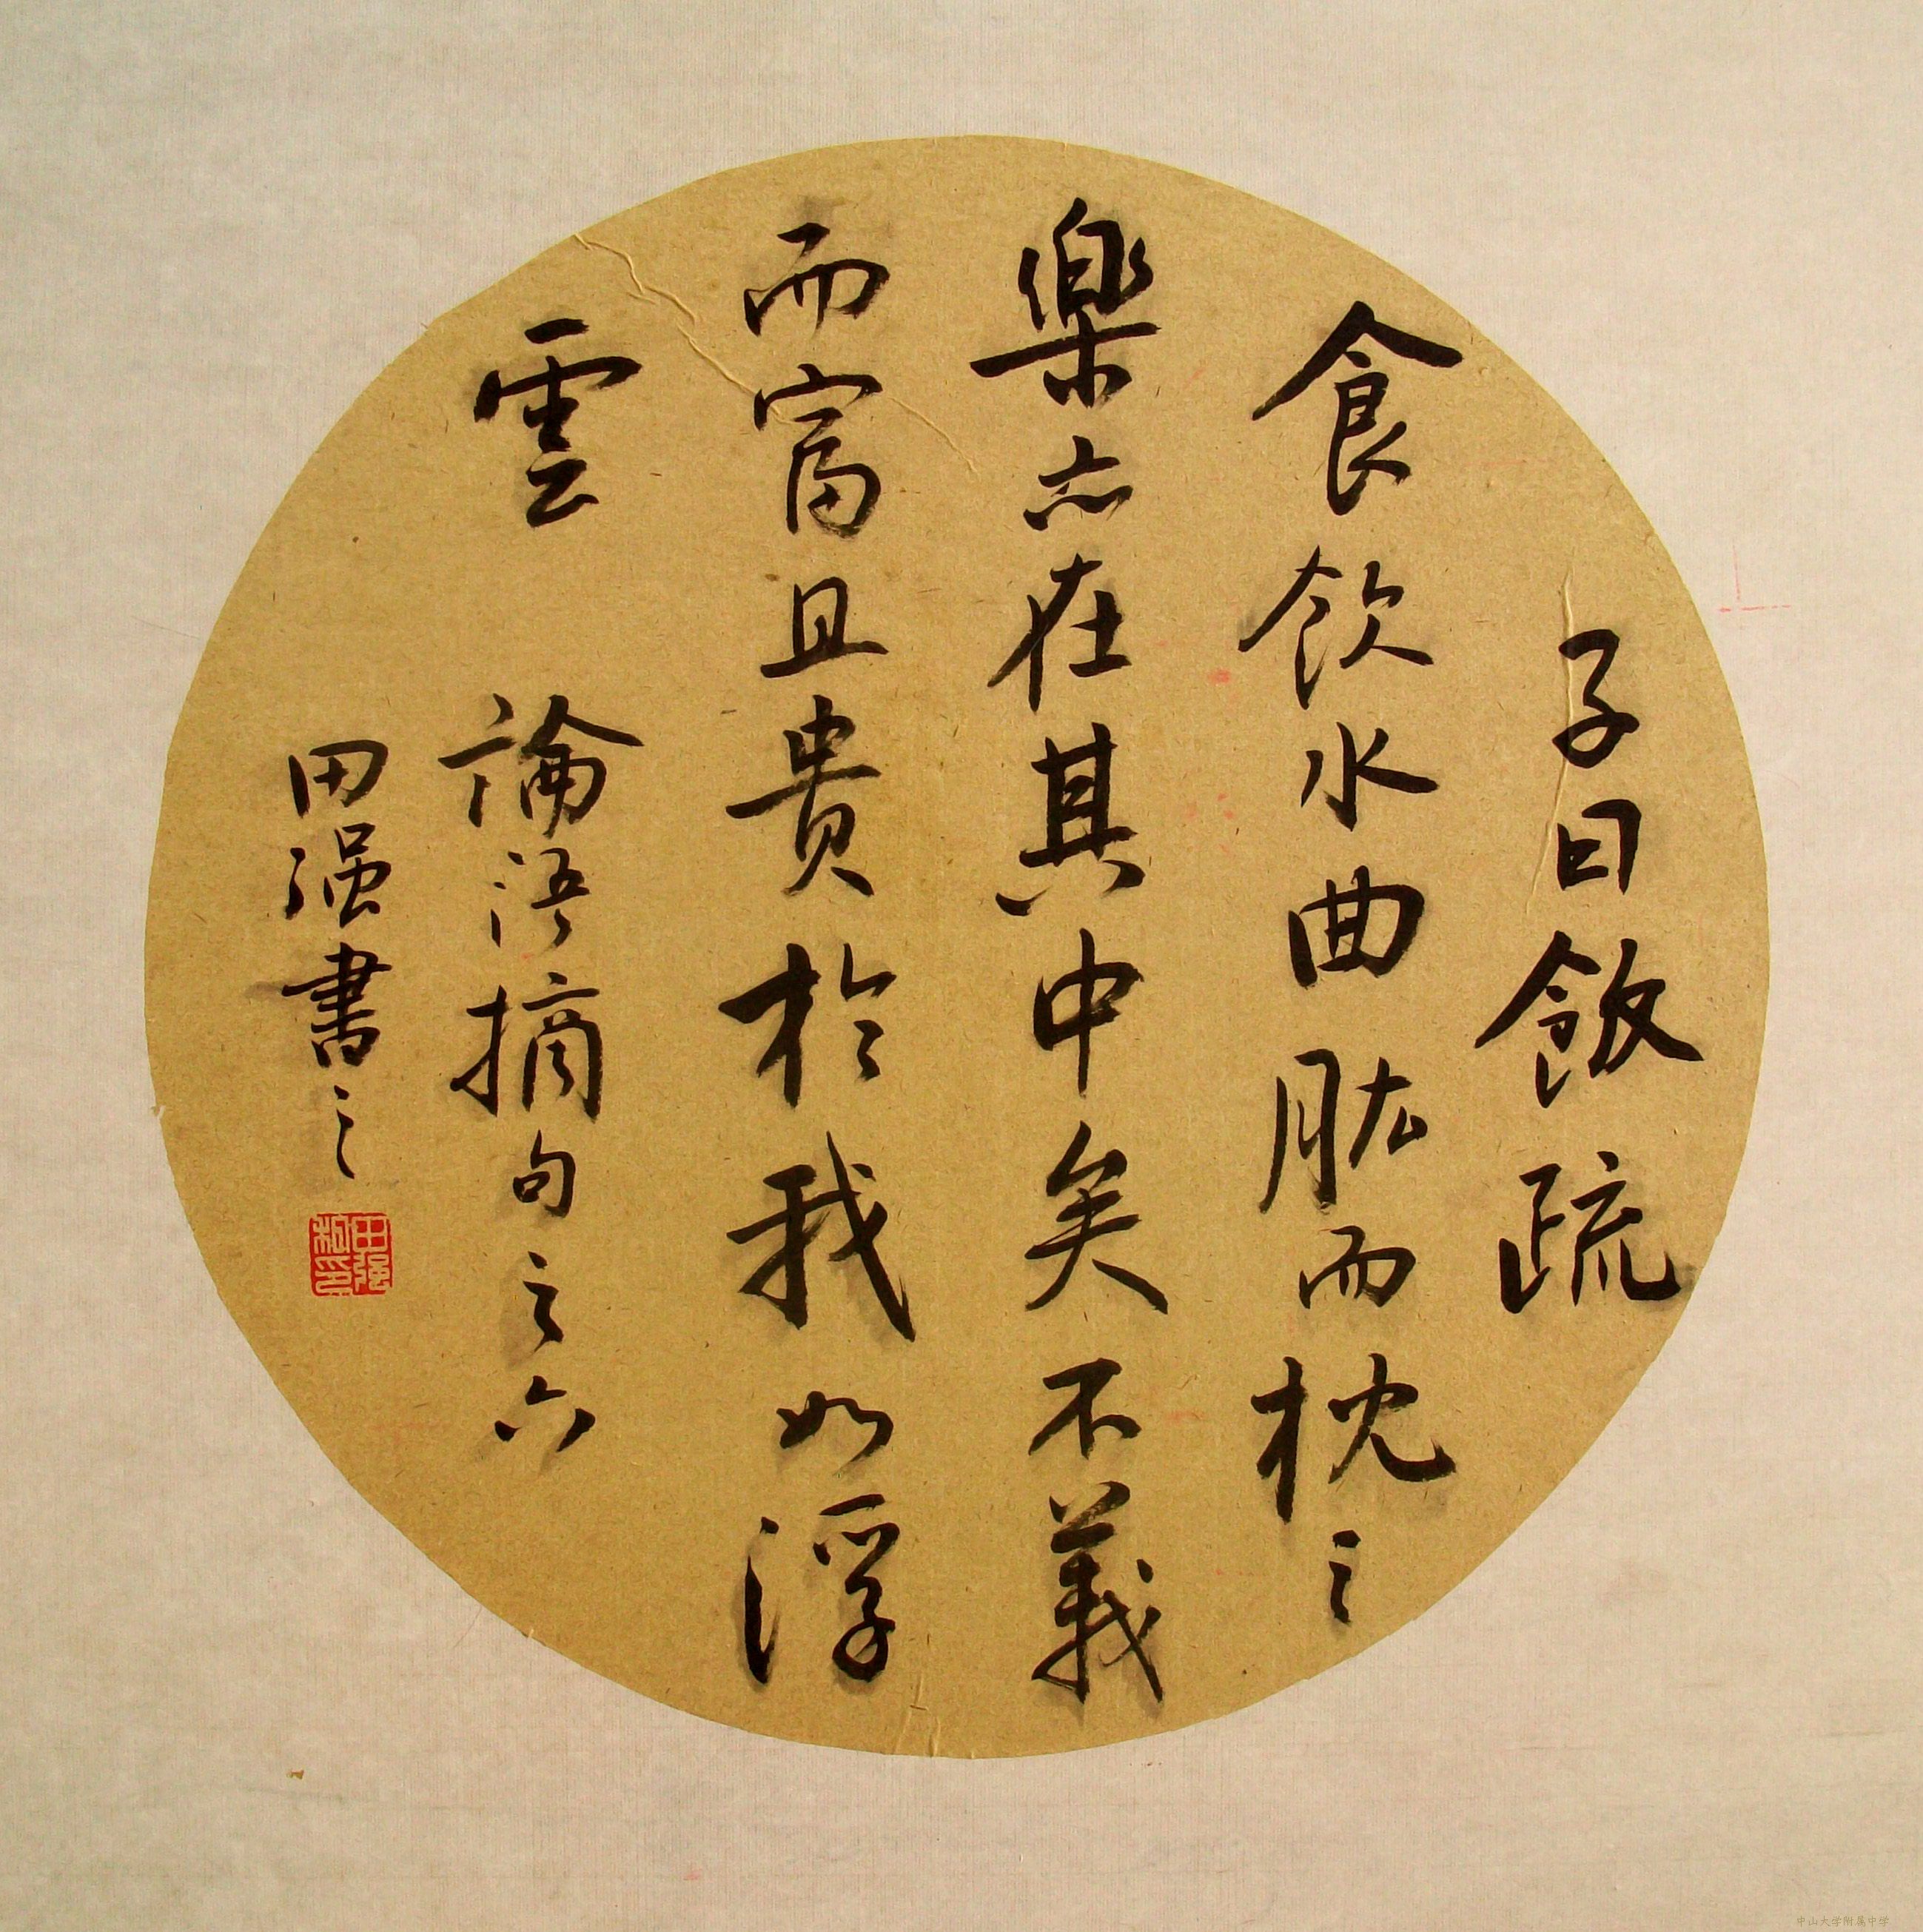 子曰飯疏
食飲水曲肱而枕之
樂亦在其中矣不義
而富且貴於我如浮
雲 論語摘句之六
田强書之
田强
印
中山大学附属中学